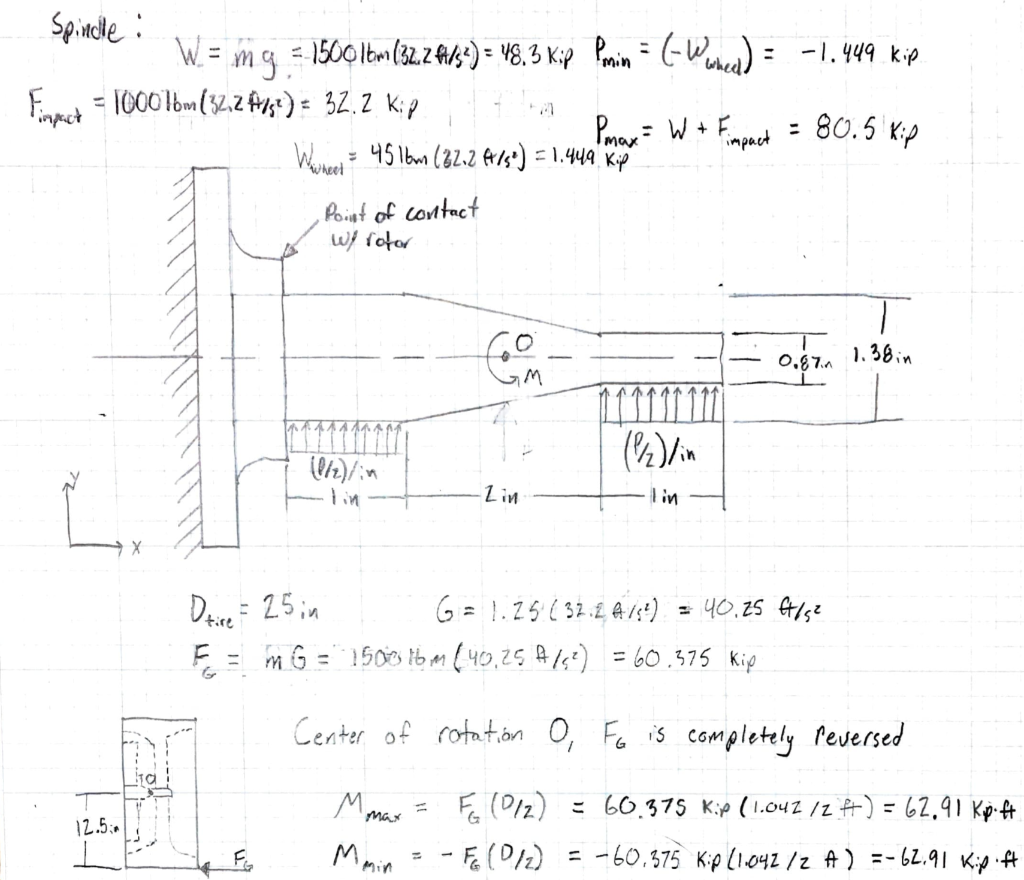 Spindle:
W = mg = 1500 lbm (32.2 ft/s²) = 48.3 Kip   P_min = (-W_wheel) = -1.449 Kip
F_impact = 1000 lbm (32.2 ft/s²) = 32.2 Kip
P_max = W + F_impact = 80.5 Kip
W_wheel = 45 lbm (32.2 ft/s²) = 1.449 Kip
Point of contact
w/ rotor
O
M
0.87in
1.38in
(P/2)/in
(P/2)/in
1 in
2 in
1 in
Y
X
D_tire = 25 in   G = 1.25 (32.2 ft/s²) = 40.25 ft/s²
F_G = mG = 1500 lbm (40.25 ft/s²) = 60.375 Kip
Center of rotation O, F_G is completely reversed
12.5in
F_G
M_max = F_G (D/2) = 60.375 Kip (1.042/2 ft) = 62.91 Kip·ft
M_min = -F_G (D/2) = -60.375 Kip (1.042/2 ft) = -62.91 Kip·ft